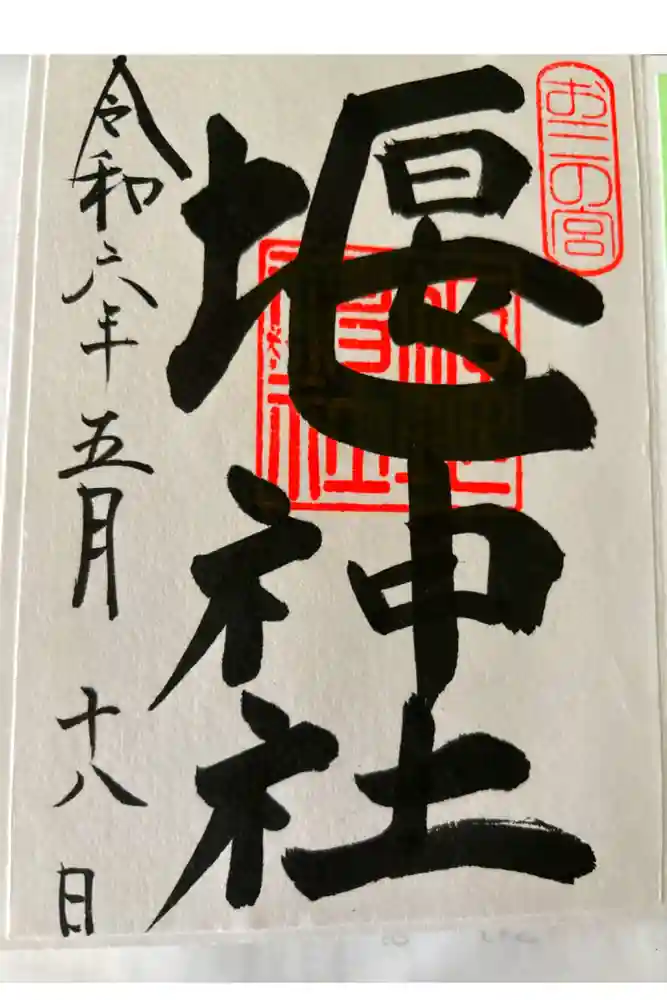 お三の宮
堰神社
令和六年五月十八日